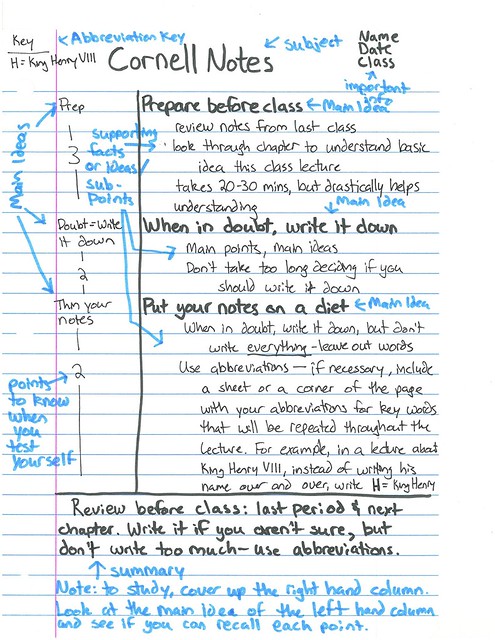 Key
<- Abbreviation Key
H = King Henry VIII
Cornell Notes
<- subject
Name
Date
Class
important
info
Prep
1
3
1
supporting
facts
or ideas
sub-
points
Main Ideas
Prepare before class <- Main Idea
review notes from last class
· look through chapter to understand basic
idea this class lecture
takes 20-30 mins, but drastically helps
understanding
Main Idea
Doubt = Write
it down
2
When in doubt, write it down
Main points, main ideas
Don't take too long deciding if you
should write it down
Thin your
notes
2
points
to know
when
you
test
yourself
Put your notes on a diet <- Main Idea
When in doubt, write it down, but don't
write everything - leave out words
Use abbreviations — if necessary, include
a sheet or a corner of the page
with your abbreviations for key words
that will be repeated throughout the
lecture. For example, in a lecture about
King Henry VIII, instead of writing his
name over and over, write H = King Henry
Review before class: last period & next
chapter. Write it if you aren't sure, but
don't write too much - use abbreviations.
summary
Note: to study, cover up the right hand column.
Look at the main idea of the left hand column
and see if you can recall each point.